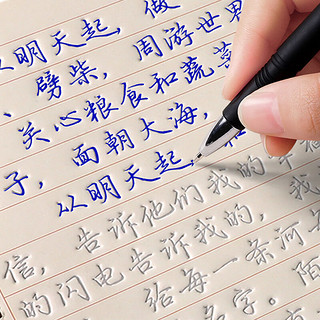 从明天起，做
劈柴，周游世界
、关心粮食和蔬菜
子，面朝大海，
从明天起，和
信，告诉他们我的幸福
的闪电告诉我的，
给每一条河每
名字。陌